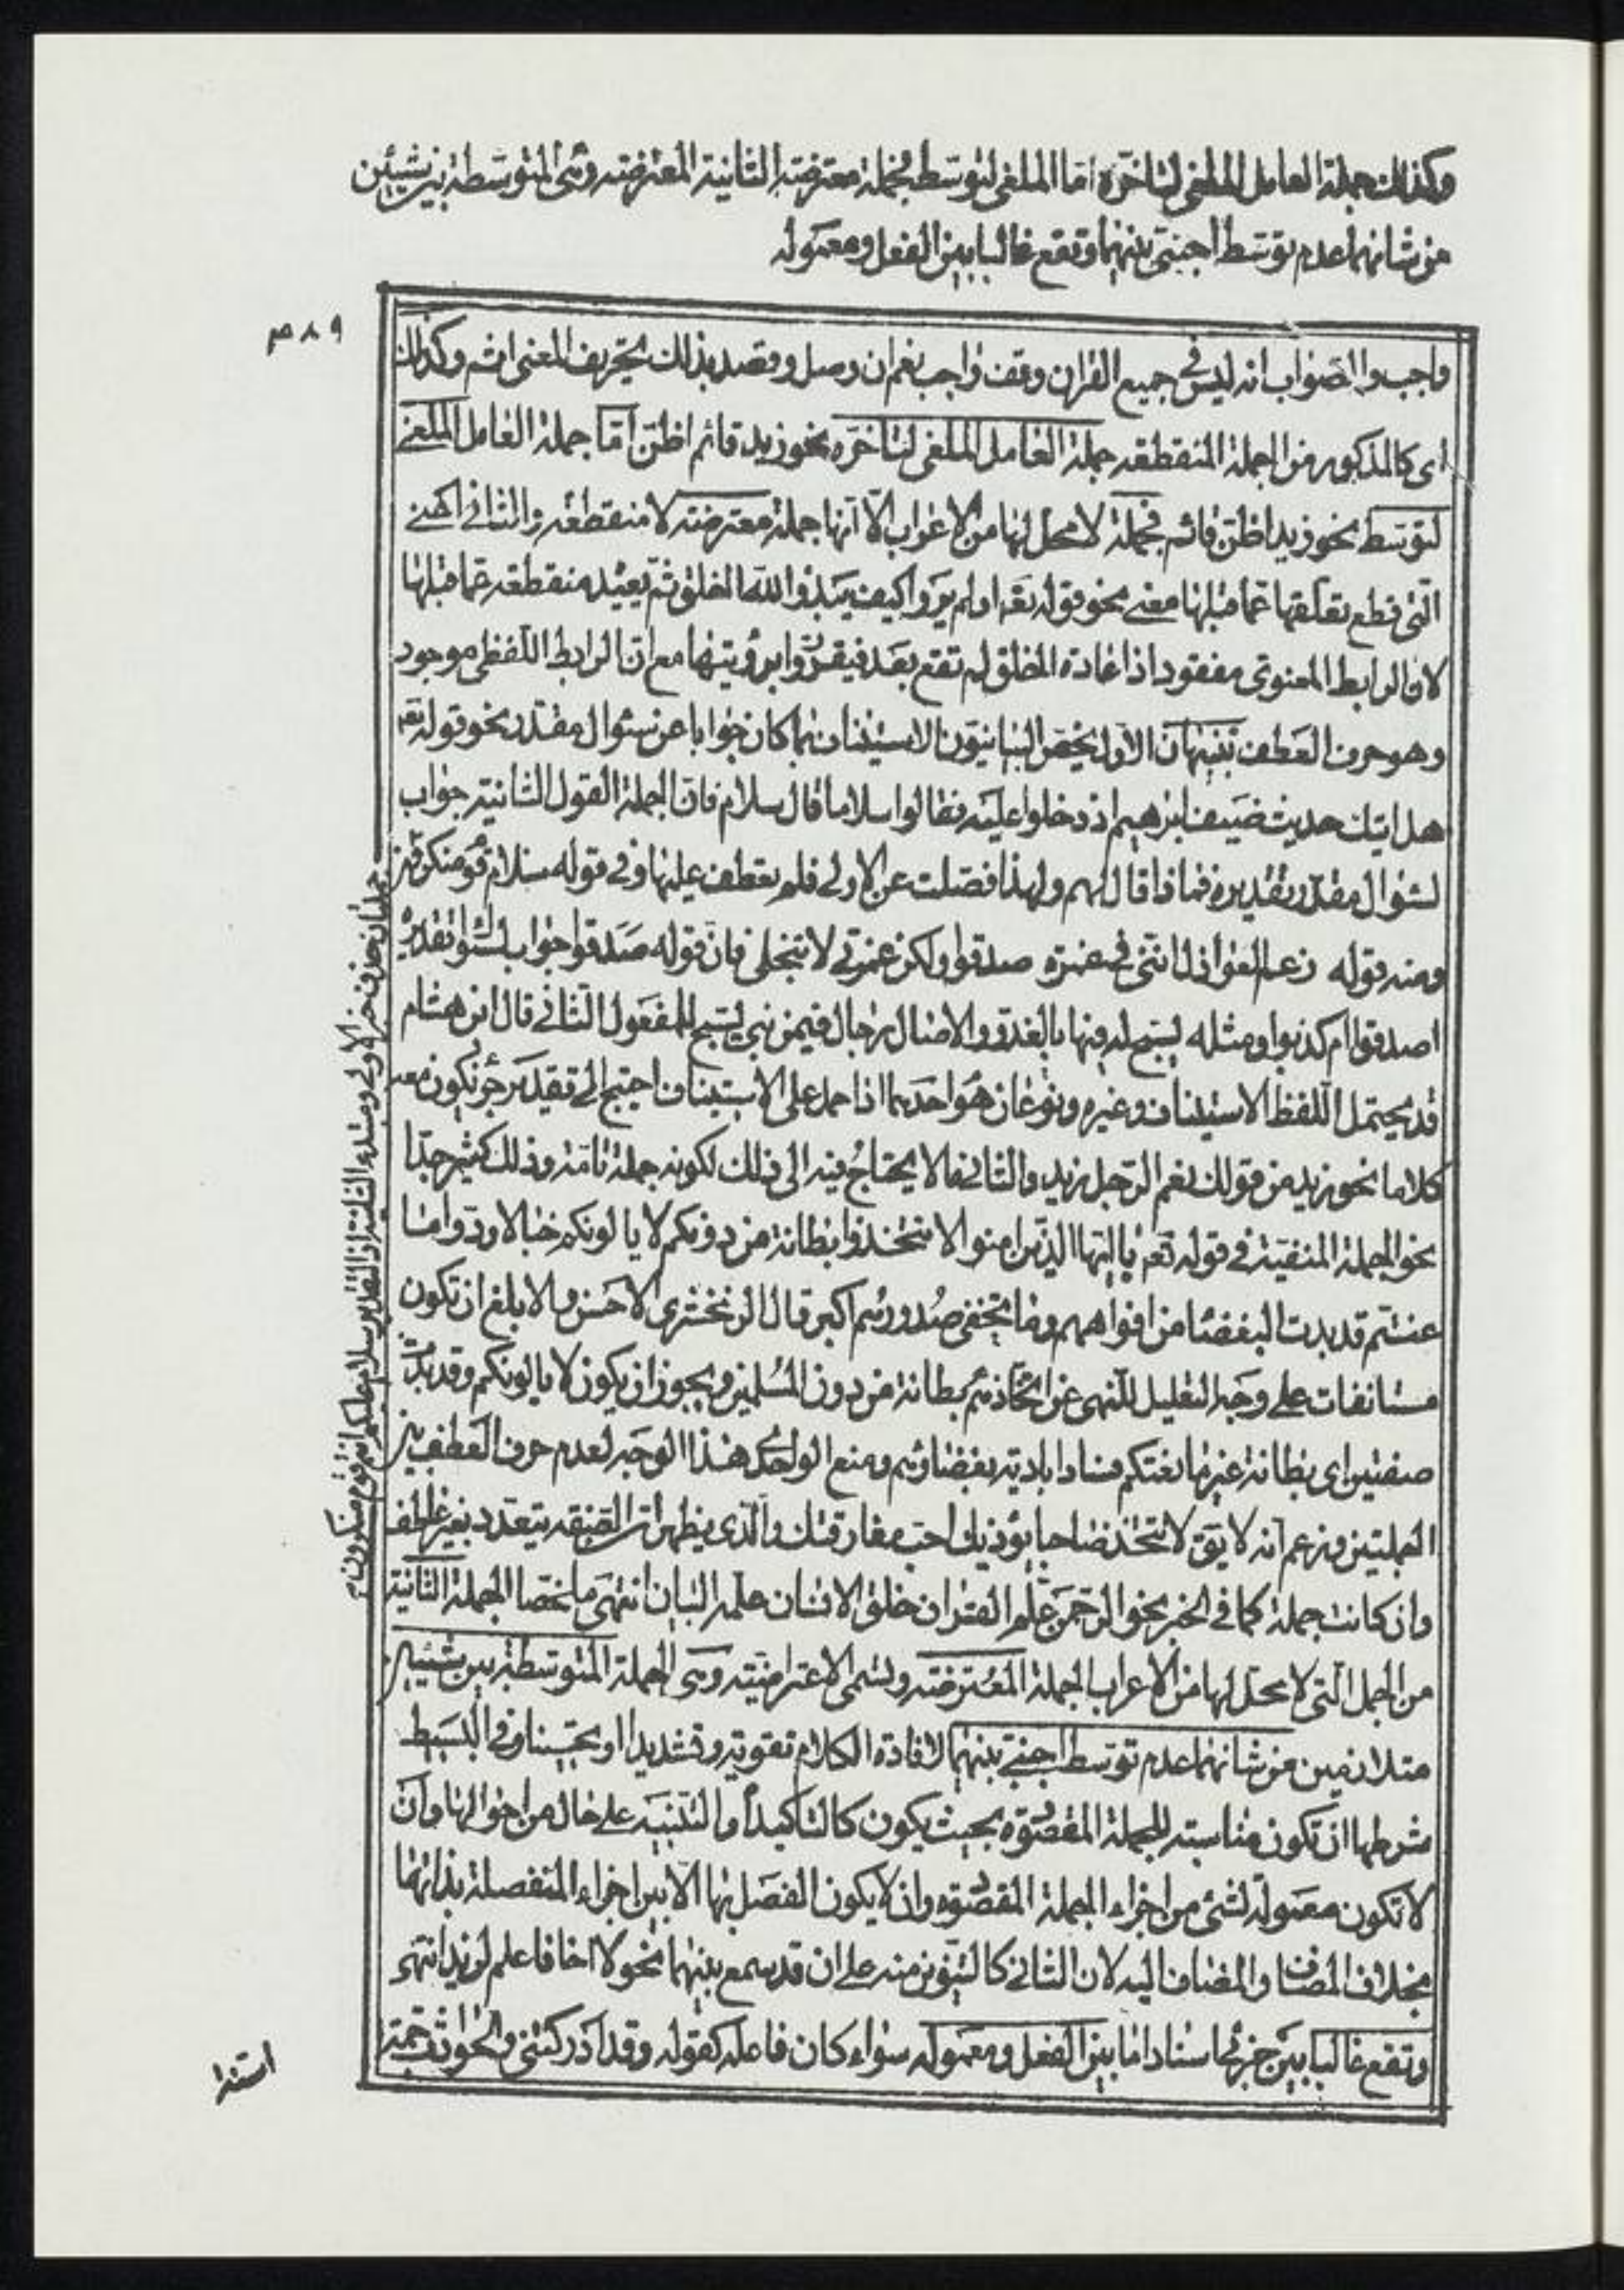 وكذلك جملة العامل الملغى لتاخره اما الملغى لتوسطه فجملة معترضة الثانية المعترضة وهى المتوسطة بين شيئين
من شانهما عدم توسط اجنبى بينهما وتقع غالبا بين الفعل ومعموله
واجب والصواب انه ليس فى جميع القران وقف واجب نعم ان وصل وقصد بذلك تحريف المعنى اثم وكذلك
اى كالمذكور من الجملة المنقطعة جملة العامل الملغى لتاخره نحو زيد قائم اظن اما جملة العامل الملغى
لتوسط نحو زيد اظن قائم فجملة لا محل لها من الاعراب الا انها جملة معترضة لا منقطعة والثانى اعنى
التى قطع تعلقها عما قبلها معنى نحو قوله تعه اولم يروا كيف يبدؤا الله الخلق ثم يعيده منقطعة عما قبلها
لان الرابط المعنوى مفقود اذ اعادة الخلق لم تقع بعد فيقرروا برؤيتها مع ان الرابط اللفظى موجود
وهو حرف العطف تنبيهان الاول يخص البيانيون الاستيناف بما كان جوابا عن سئوال مقدر نحو قوله تعه
هل اتيك حديث ضيف ابرهيم اذ دخلوا عليه فقالوا سلاما قال سلام فان الجملة القول الثانية جواب
لسئوال مقدر تقديره فماذا قال لهم ولهذا فصلت عن الاولى فلم تعطف عليها وفى قوله سلام قوم منكرون
ومنه قوله زعم العواذل اننى فى غمرة صدقوا ولكن غمرتى لا تنجلى فان قوله صدقوا جواب لسئوال تقديره
اصدقوا ام كذبوا ومثله يسبح له فيها بالغدو والاصال رجال فيمن بنى يسبح للمفعول الثانى قال ابن هشام
قد يحتمل اللفظ الاستيناف وغيره وهو نوعان احدهما اذا حمل على الاستيناف احتيج الى تقدير جزء يكون معه
كلاما نحو زيد من قولك نعم الرجل زيد والثانى ما لا يحتاج فيه الى ذلك لكونه جملة تامة وذلك كثير جدا
نحو الجملة المنفية فى قوله تعه يا ايها الذين امنوا لا تتخذوا بطانة من دونكم لا يالونكم خبالا ودوا ما
عنتم قد بدت البغضا من افواههم وما تخفى صدورهم اكبر قال الزمخشرى الاحسن والابلغ ان تكون
مستانفات على وجه التعليل للنهى عن اتخاذهم بطانة من دون المسلمين ويجوز ان يكون لا يالونكم وقد بدت
صفتين اى بطانة غير مانعتكم فسادا بادية بغضاؤهم ومنع الواحدى هذا الوجه لعدم حرف العطف بين
الجملتين وزعم انه لا يقق لا تتخذ صاحبا يؤذيك احب مفارقتك والذى يظهر ان الصفة يتعدد بغير عاطف
وان كانت جملة كما فى الخبر نحو الرحمن علم القران خلق الانسان علمه البيان انتهى ملخصا الجملة الثانية
من الجمل التى لا محل لها من الاعراب الجملة المعترضة وتسمى الاعتراضية وهى الجملة المتوسطة بين شيئين
متلازمين من شانهما عدم توسط اجنبى بينهما لافادة الكلام تقوية وتشديدا او تحسينا وفى البسيط
شرطها ان تكون مناسبة للجملة المقصودة بحيث يكون كالتاكيد او التنبيه على حال من احوالها وان
لا تكون معمولة لشئ من اجزاء الجملة المقصودة وان لا يكون الفصل بها الا بين اجزاء المنفصلة بذاتها
بخلاف المضاف والمضاف اليه لان الثانى كالتنوين منه على ان قد سمع بينهما نحو لا اخا فاعلم لزيد انتهى
وتقع غالبا بين جزئى اسناد اما بين الفعل ومعموله سواء كان فاعله كقوله وقد ادركتنى والحوادث جمة
جملتان حذف خبر الاولى ومبتدء الثانية اذ التقدير سلام عليكم انتم قوم منكرون